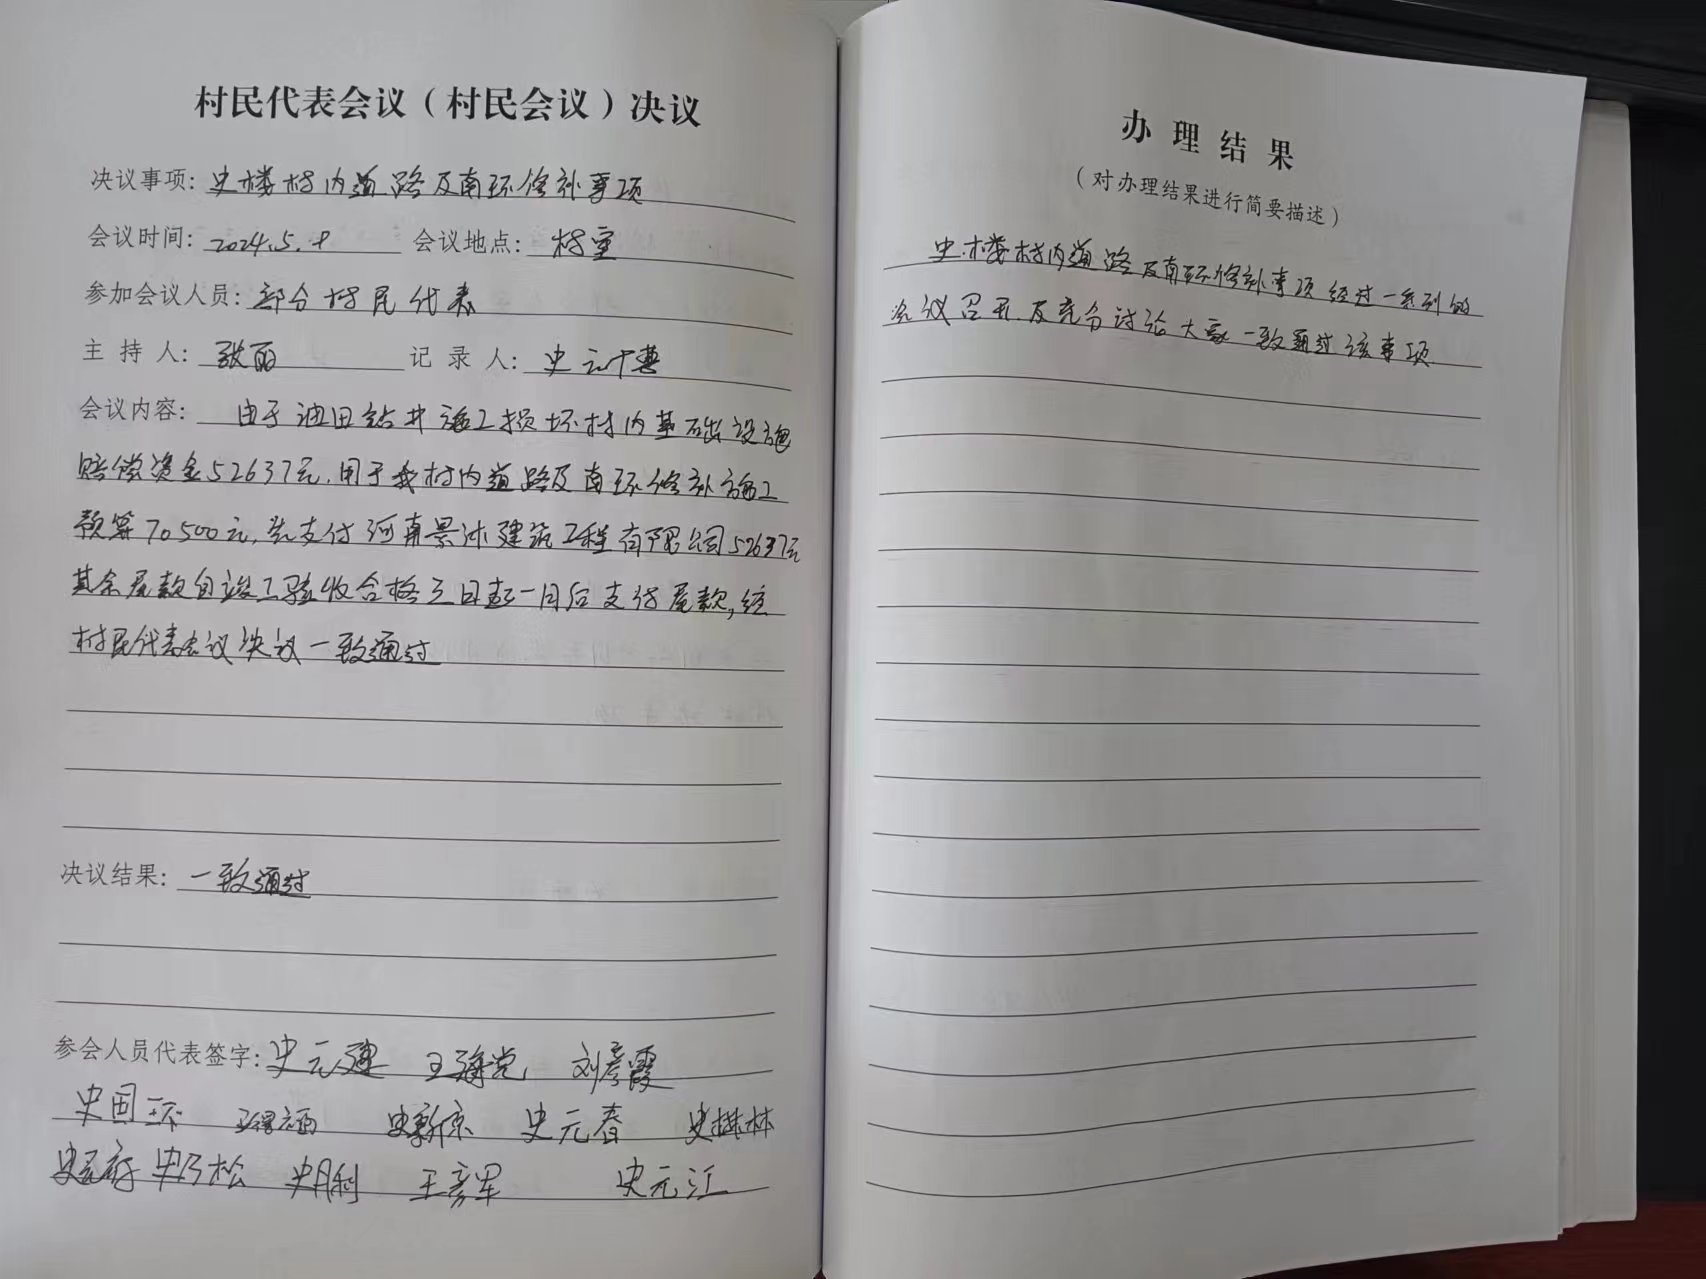 村民代表会议（村民会议）决议
决议事项: 史楼村内道路及南环修补事项
会议时间: 2024.5.8 会议地点: 村室
参加会议人员: 部分村民代表
主 持 人: 张丽 记 录 人: 史
会议内容: 由于油田钻井施工损坏村内基础设施
赔偿资金52637元.用于我村内道路及南环修补施工
预算70500元,先支付河南景沐建筑工程有限公司52637元
其余尾款自竣工验收合格之日起一月后支付尾款,经
村民代表会议决议一致通过
决议结果: 一致通过
参会人员代表签字: 史元建 王海党 刘彦霞
史国环 史新京 史元春 史樾林
史乃松 史月利 王彦军 史元江
办理结果
（对办理结果进行简要描述）
史楼村内道路及南环修补事项 经过一系列的
会议召开.及充分讨论 大家一致通过该事项